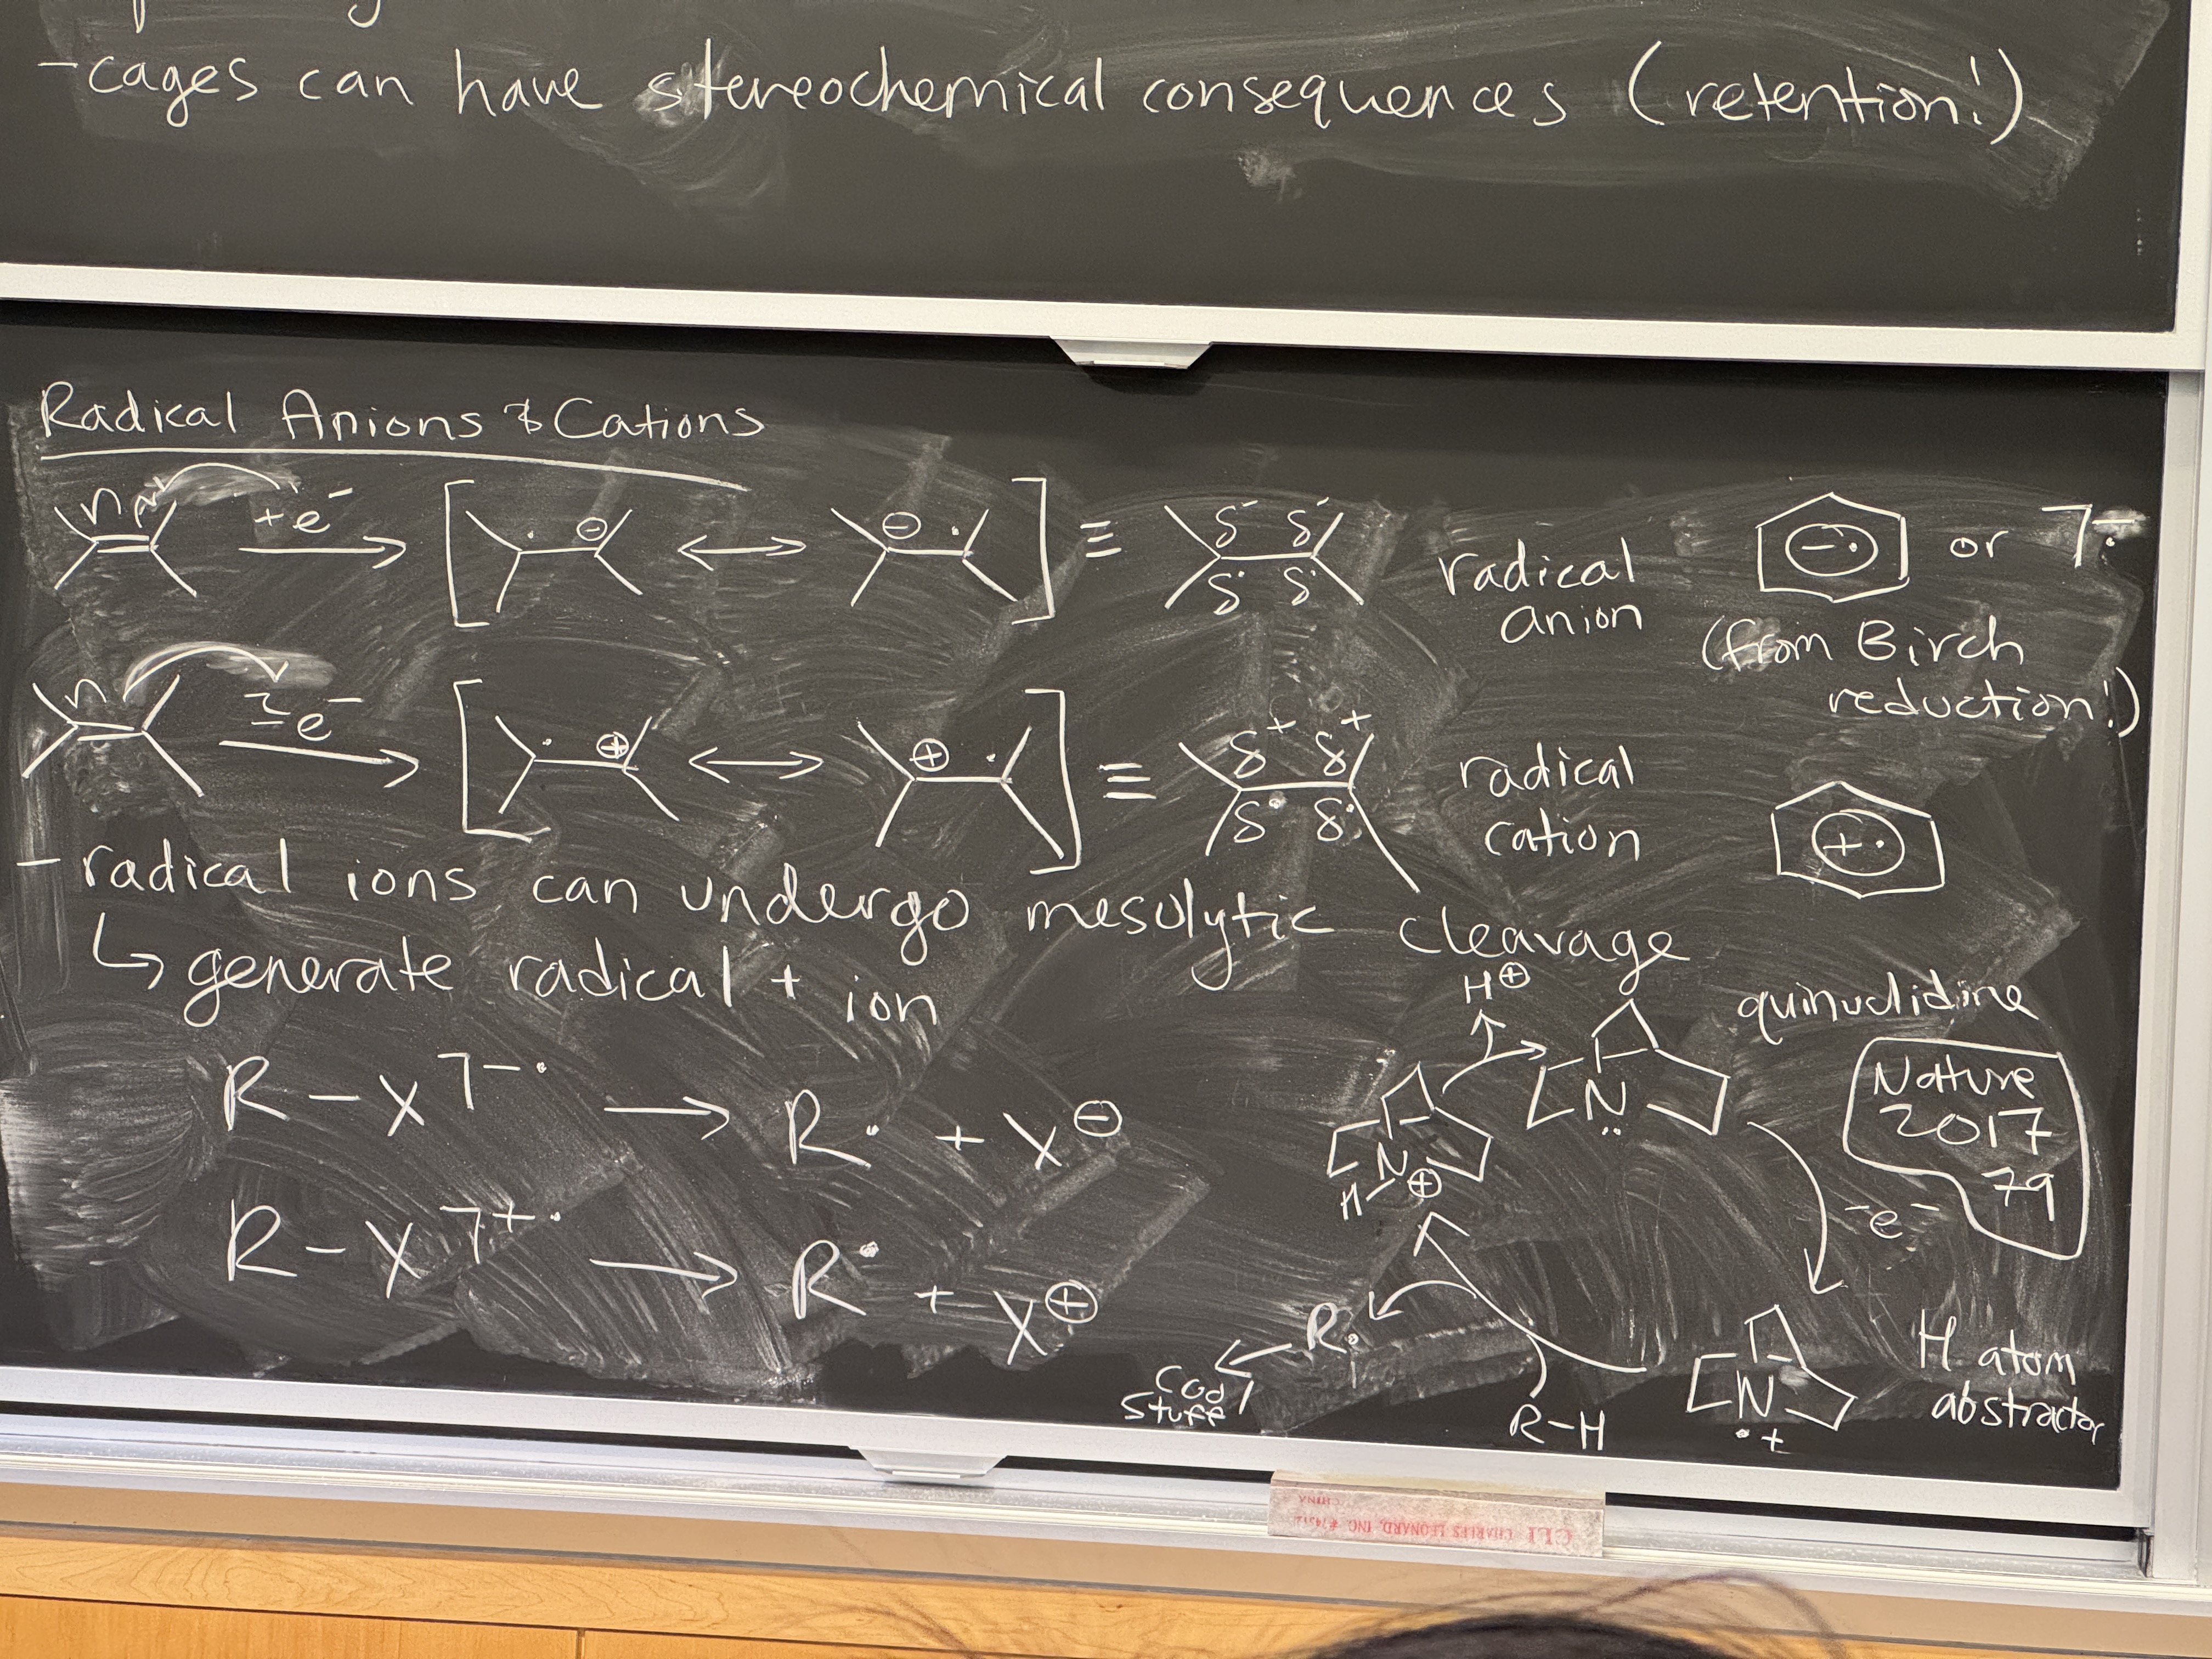 -cages can have stereochemical consequences (retention!)
Radical Anions & Cations
+e⁻
[ · ⊖ ↔ ⊖ · ] ≡ δ⁻ δ⁻ δ· δ·
radical anion
-· or ⌝-·
(from Birch reduction!)
-e⁻
[ · ⊕ ↔ ⊕ · ] ≡ δ⁺ δ⁺ δ· δ·
radical cation
+·
- radical ions can undergo mesolytic cleavage
↳ generate radical + ion
R-X⌝-· → R· + X⊖
R-X⌝+· → R· + X⊕
H⊕
quinuclidine
N
··
Nature
2017
79
N
H ⊕
-e⁻
R·
R-H
N
·+
H atom
abstractor
stuff
CLI CHARLES LEONARD, INC. #74512
CHINA